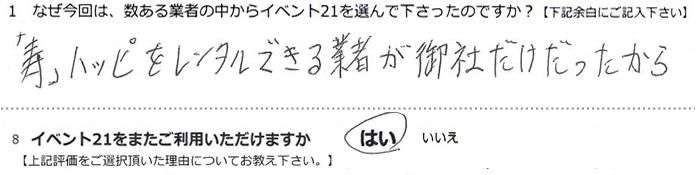 1 なぜ今回は、数ある業者の中からイベント21を選んで下さったのですか？【下記余白にご記入下さい】
「寿」ハッピをレンタルできる業者が御社だけだったから
8 イベント21をまたご利用いただけますか はい いいえ
【上記評価をご選択頂いた理由についてお教え下さい。】